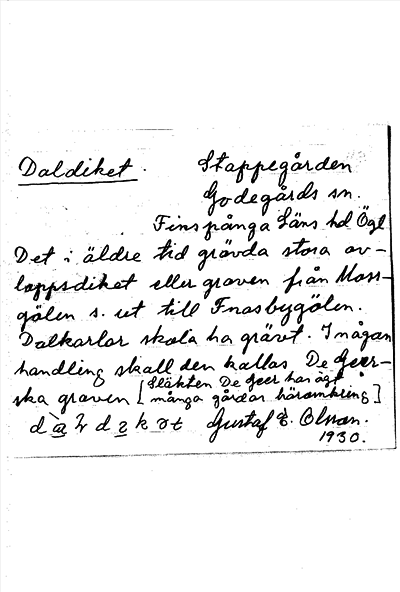 Daldiket. Stappegården
Godegårds sn.
Finspånga Läns hd Ögl
Det i äldre tid grävda stora av-
loppsdiket eller graven från Moss-
gölen s. ut till Fnasbygölen.
Dalkarlar skola ha grävt. I någon
handling skall den kallas De Geer-
ska graven [Släkten De Geer har ägt
många gårdar häromkring]
Gustaf E. Olsson.
1930.